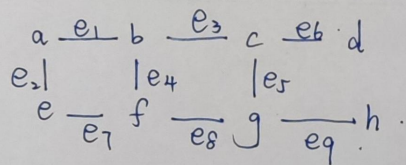 a e₁ b e₃ c e₆ d
e₂ e₄ e₅
e e₇ f e₈ g e₉ h